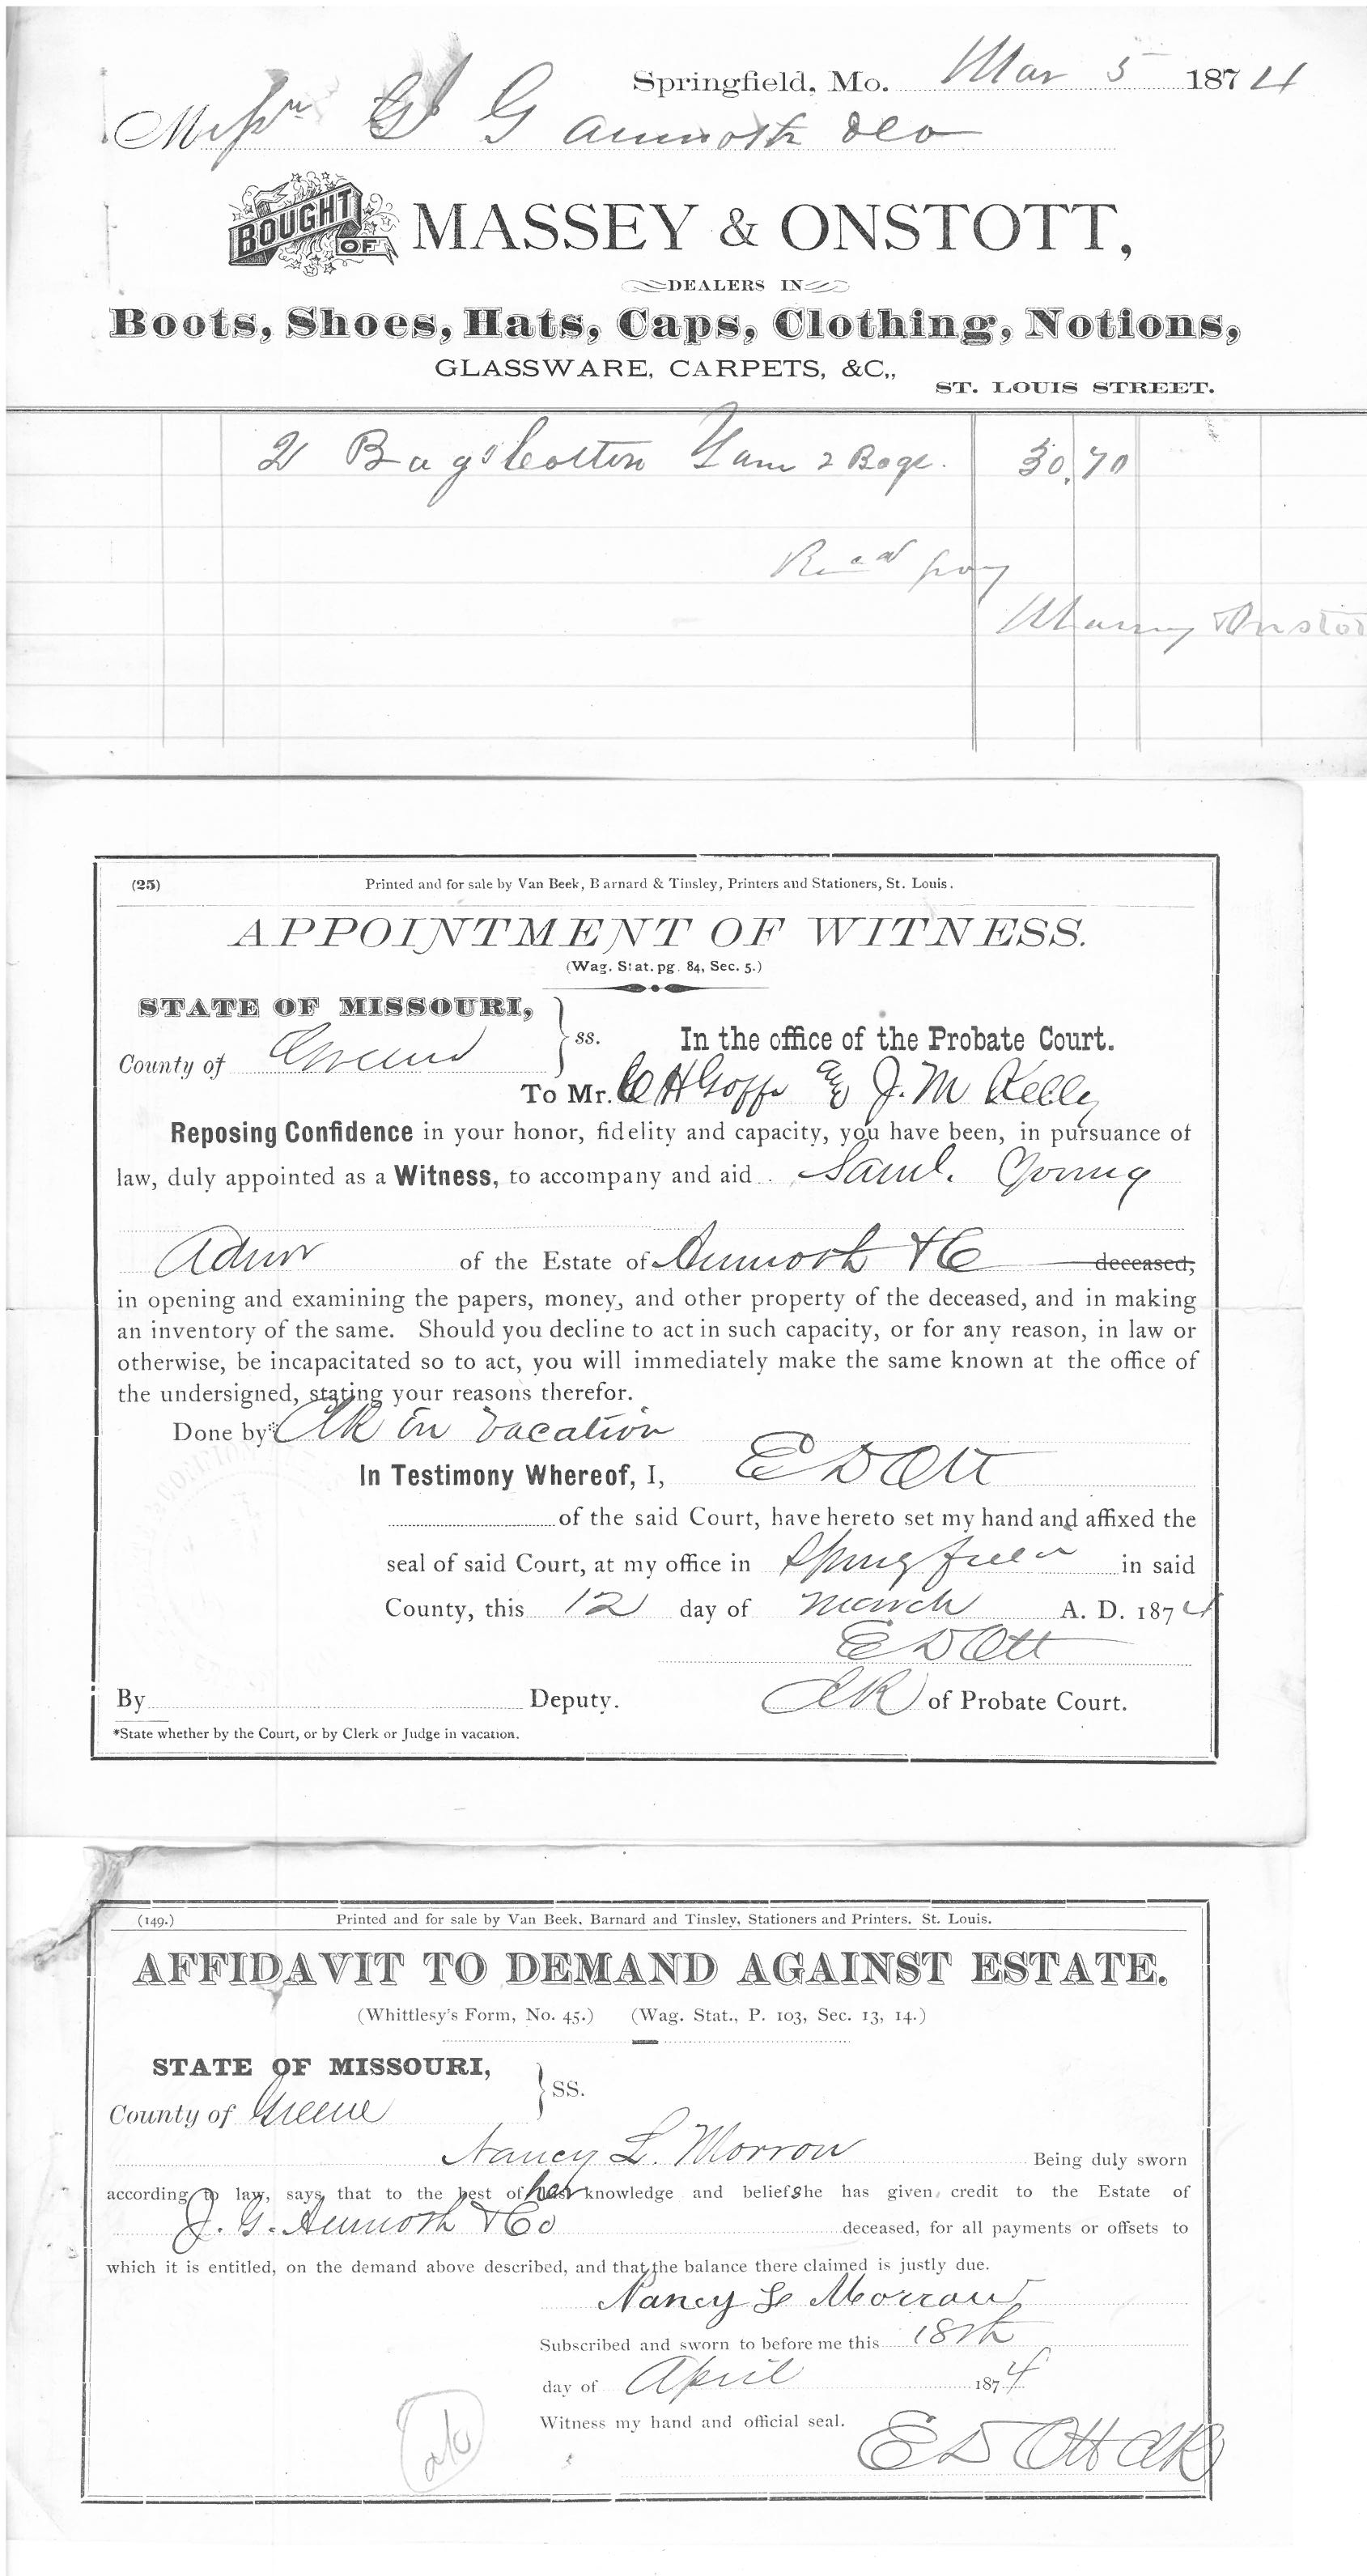 Springfield, Mo. Mar 5 1874
G
BOUGHT OF MASSEY & ONSTOTT,
DEALERS IN
Boots, Shoes, Hats, Caps, Clothing, Notions,
GLASSWARE, CARPETS, &C,,
ST. LOUIS STREET.
2 Bags Cotton Yarn 2 Bags. 30.70
Recd pay
Massey & Onstot
(25) Printed and for sale by Van Beek, Barnard & Tinsley, Printers and Stationers, St. Louis.
APPOINTMENT OF WITNESS.
(Wag. Stat. pg. 84, Sec. 5.)
STATE OF MISSOURI,
County of Greene } ss. In the office of the Probate Court.
To Mr. C H Goffe and J. M Kelly
Reposing Confidence in your honor, fidelity and capacity, you have been, in pursuance of
law, duly appointed as a Witness, to accompany and aid Saml. Young
Admr of the Estate of & Co deceased,
in opening and examining the papers, money, and other property of the deceased, and in making
an inventory of the same. Should you decline to act in such capacity, or for any reason, in law or
otherwise, be incapacitated so to act, you will immediately make the same known at the office of
the undersigned, stating your reasons therefor.
Done by* Clk in vacation
In Testimony Whereof, I, E D Ott
of the said Court, have hereto set my hand and affixed the
seal of said Court, at my office in Springfield in said
County, this 12 day of March A. D. 1874
E D Ott
By Deputy. Clk of Probate Court.
*State whether by the Court, or by Clerk or Judge in vacation.
(149.) Printed and for sale by Van Beek, Barnard and Tinsley, Stationers and Printers. St. Louis.
AFFIDAVIT TO DEMAND AGAINST ESTATE.
(Whittlesy's Form, No. 45.) (Wag. Stat., P. 103, Sec. 13, 14.)
STATE OF MISSOURI,
County of Greene } SS.
Nancy L. Morrow Being duly sworn
according to law, says, that to the best of her knowledge and belief she has given credit to the Estate of
J. G. & Co deceased, for all payments or offsets to
which it is entitled, on the demand above described, and that the balance there claimed is justly due.
Nancy L Morrow
Subscribed and sworn to before me this 18th
day of April 1874
Witness my hand and official seal.
E D Ott Clk